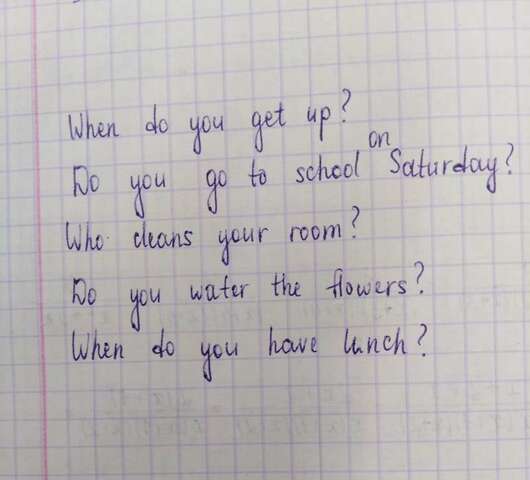 When do you get up?
Do you go to school on Saturday?
Who cleans your room?
Do you water the flowers?
When do you have lunch?